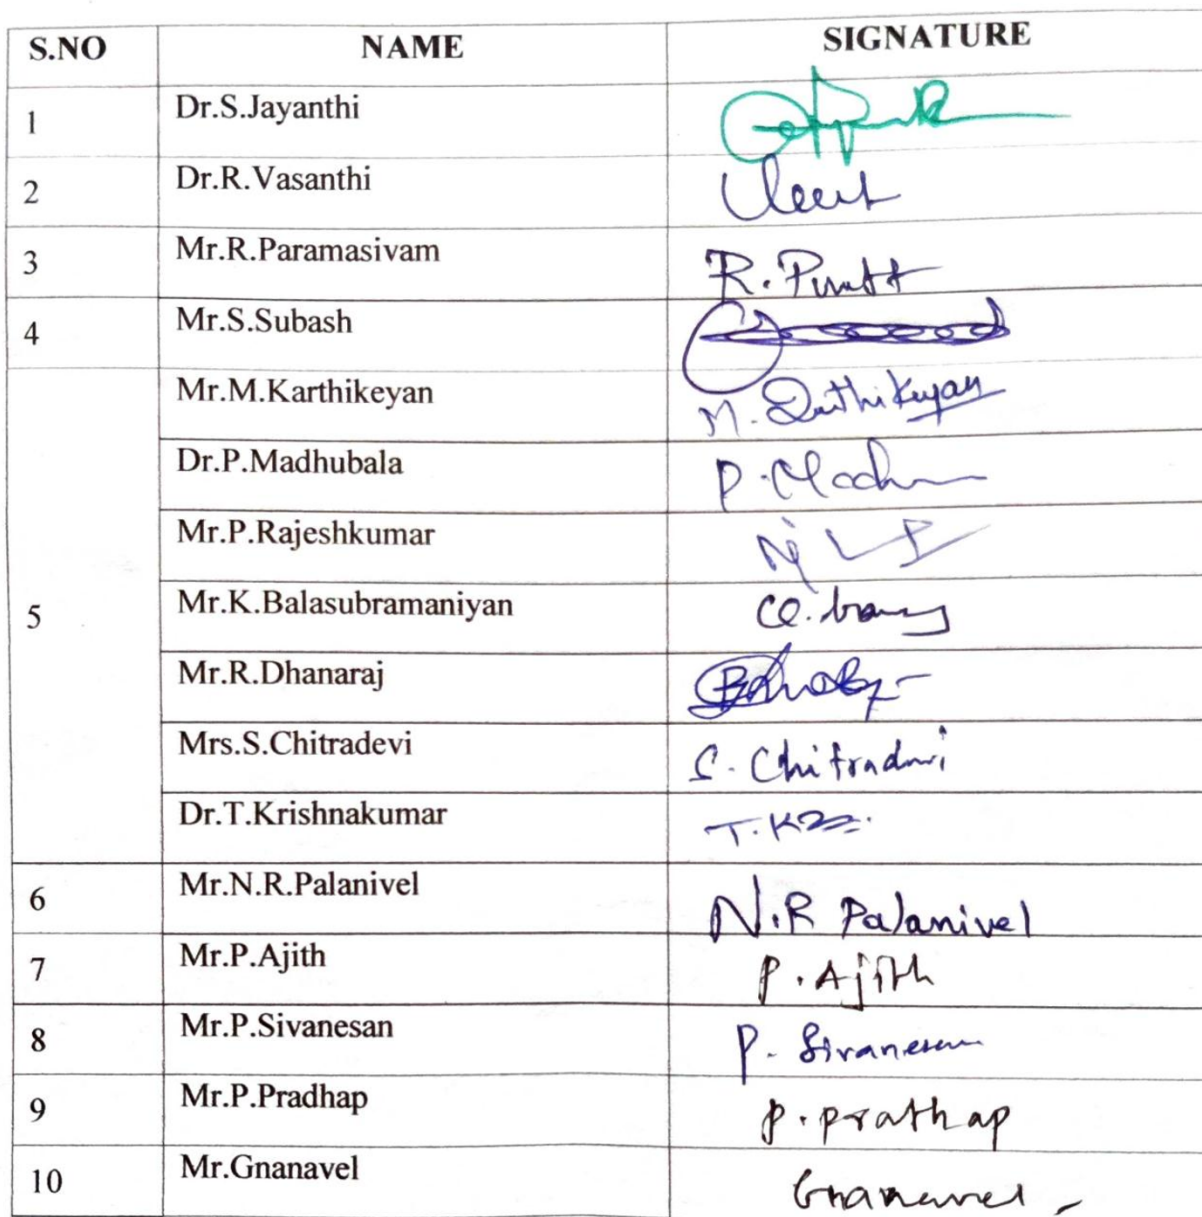 S.NO NAME SIGNATURE
1 Dr.S.Jayanthi
2 Dr.R.Vasanthi
3 Mr.R.Paramasivam R.
4 Mr.S.Subash
5 Mr.M.Karthikeyan M. Karthikeyan
Dr.P.Madhubala P.
Mr.P.Rajeshkumar
Mr.K.Balasubramaniyan
Mr.R.Dhanaraj
Mrs.S.Chitradevi S. Chitradevi
Dr.T.Krishnakumar T.K
6 Mr.N.R.Palanivel N.R Palanivel
7 Mr.P.Ajith P. Ajith
8 Mr.P.Sivanesan P. Sivanesan
9 Mr.P.Pradhap P. prathap
10 Mr.Gnanavel Gnanavel